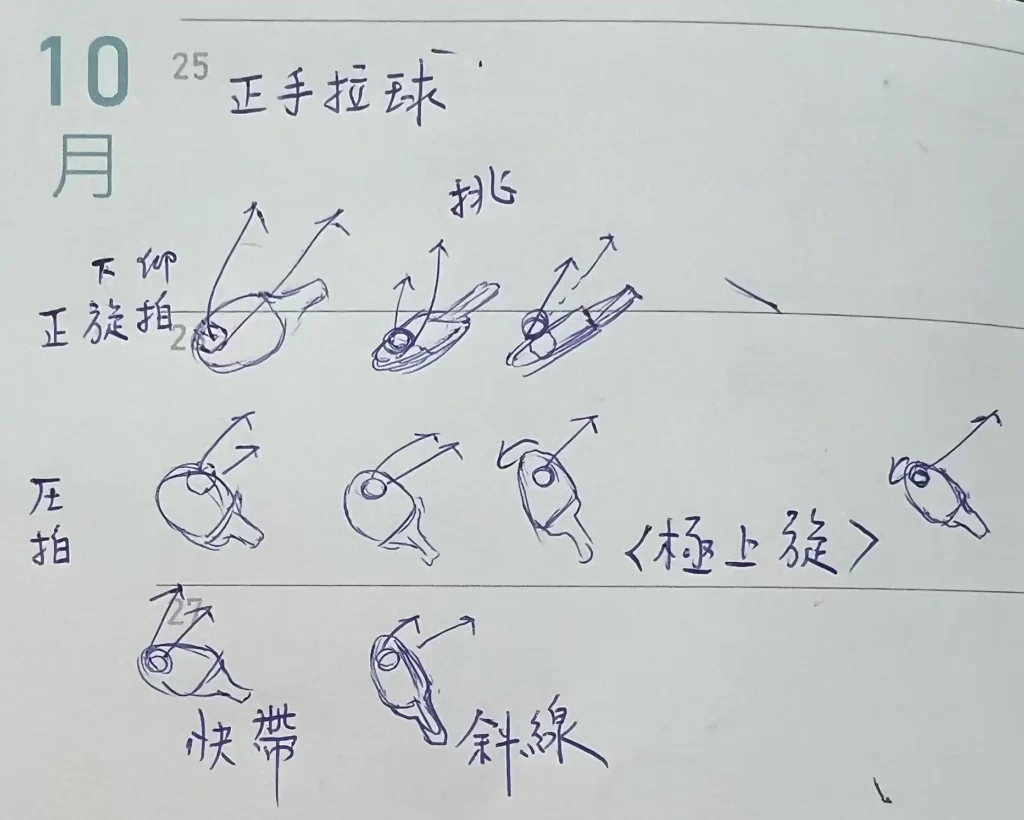 10
月
25
正手拉球
挑
下仰
正旋拍
2
压
拍
〈極上旋〉
27
快帶
斜線